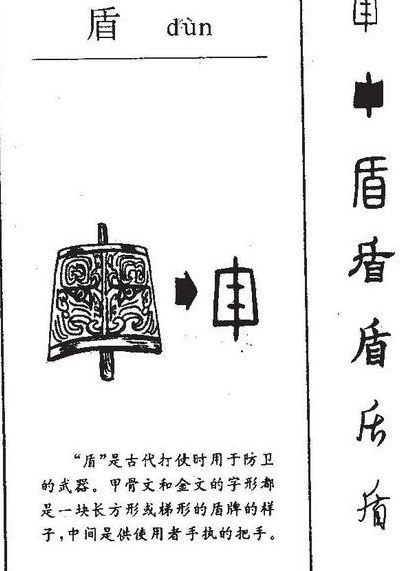 盾 dùn
“盾”是古代打仗时用于防卫
的武器。甲骨文和金文的字形都
是一块长方形或梯形的盾牌的样
子，中间是供使用者手执的把手。
盾
盾
盾
盾